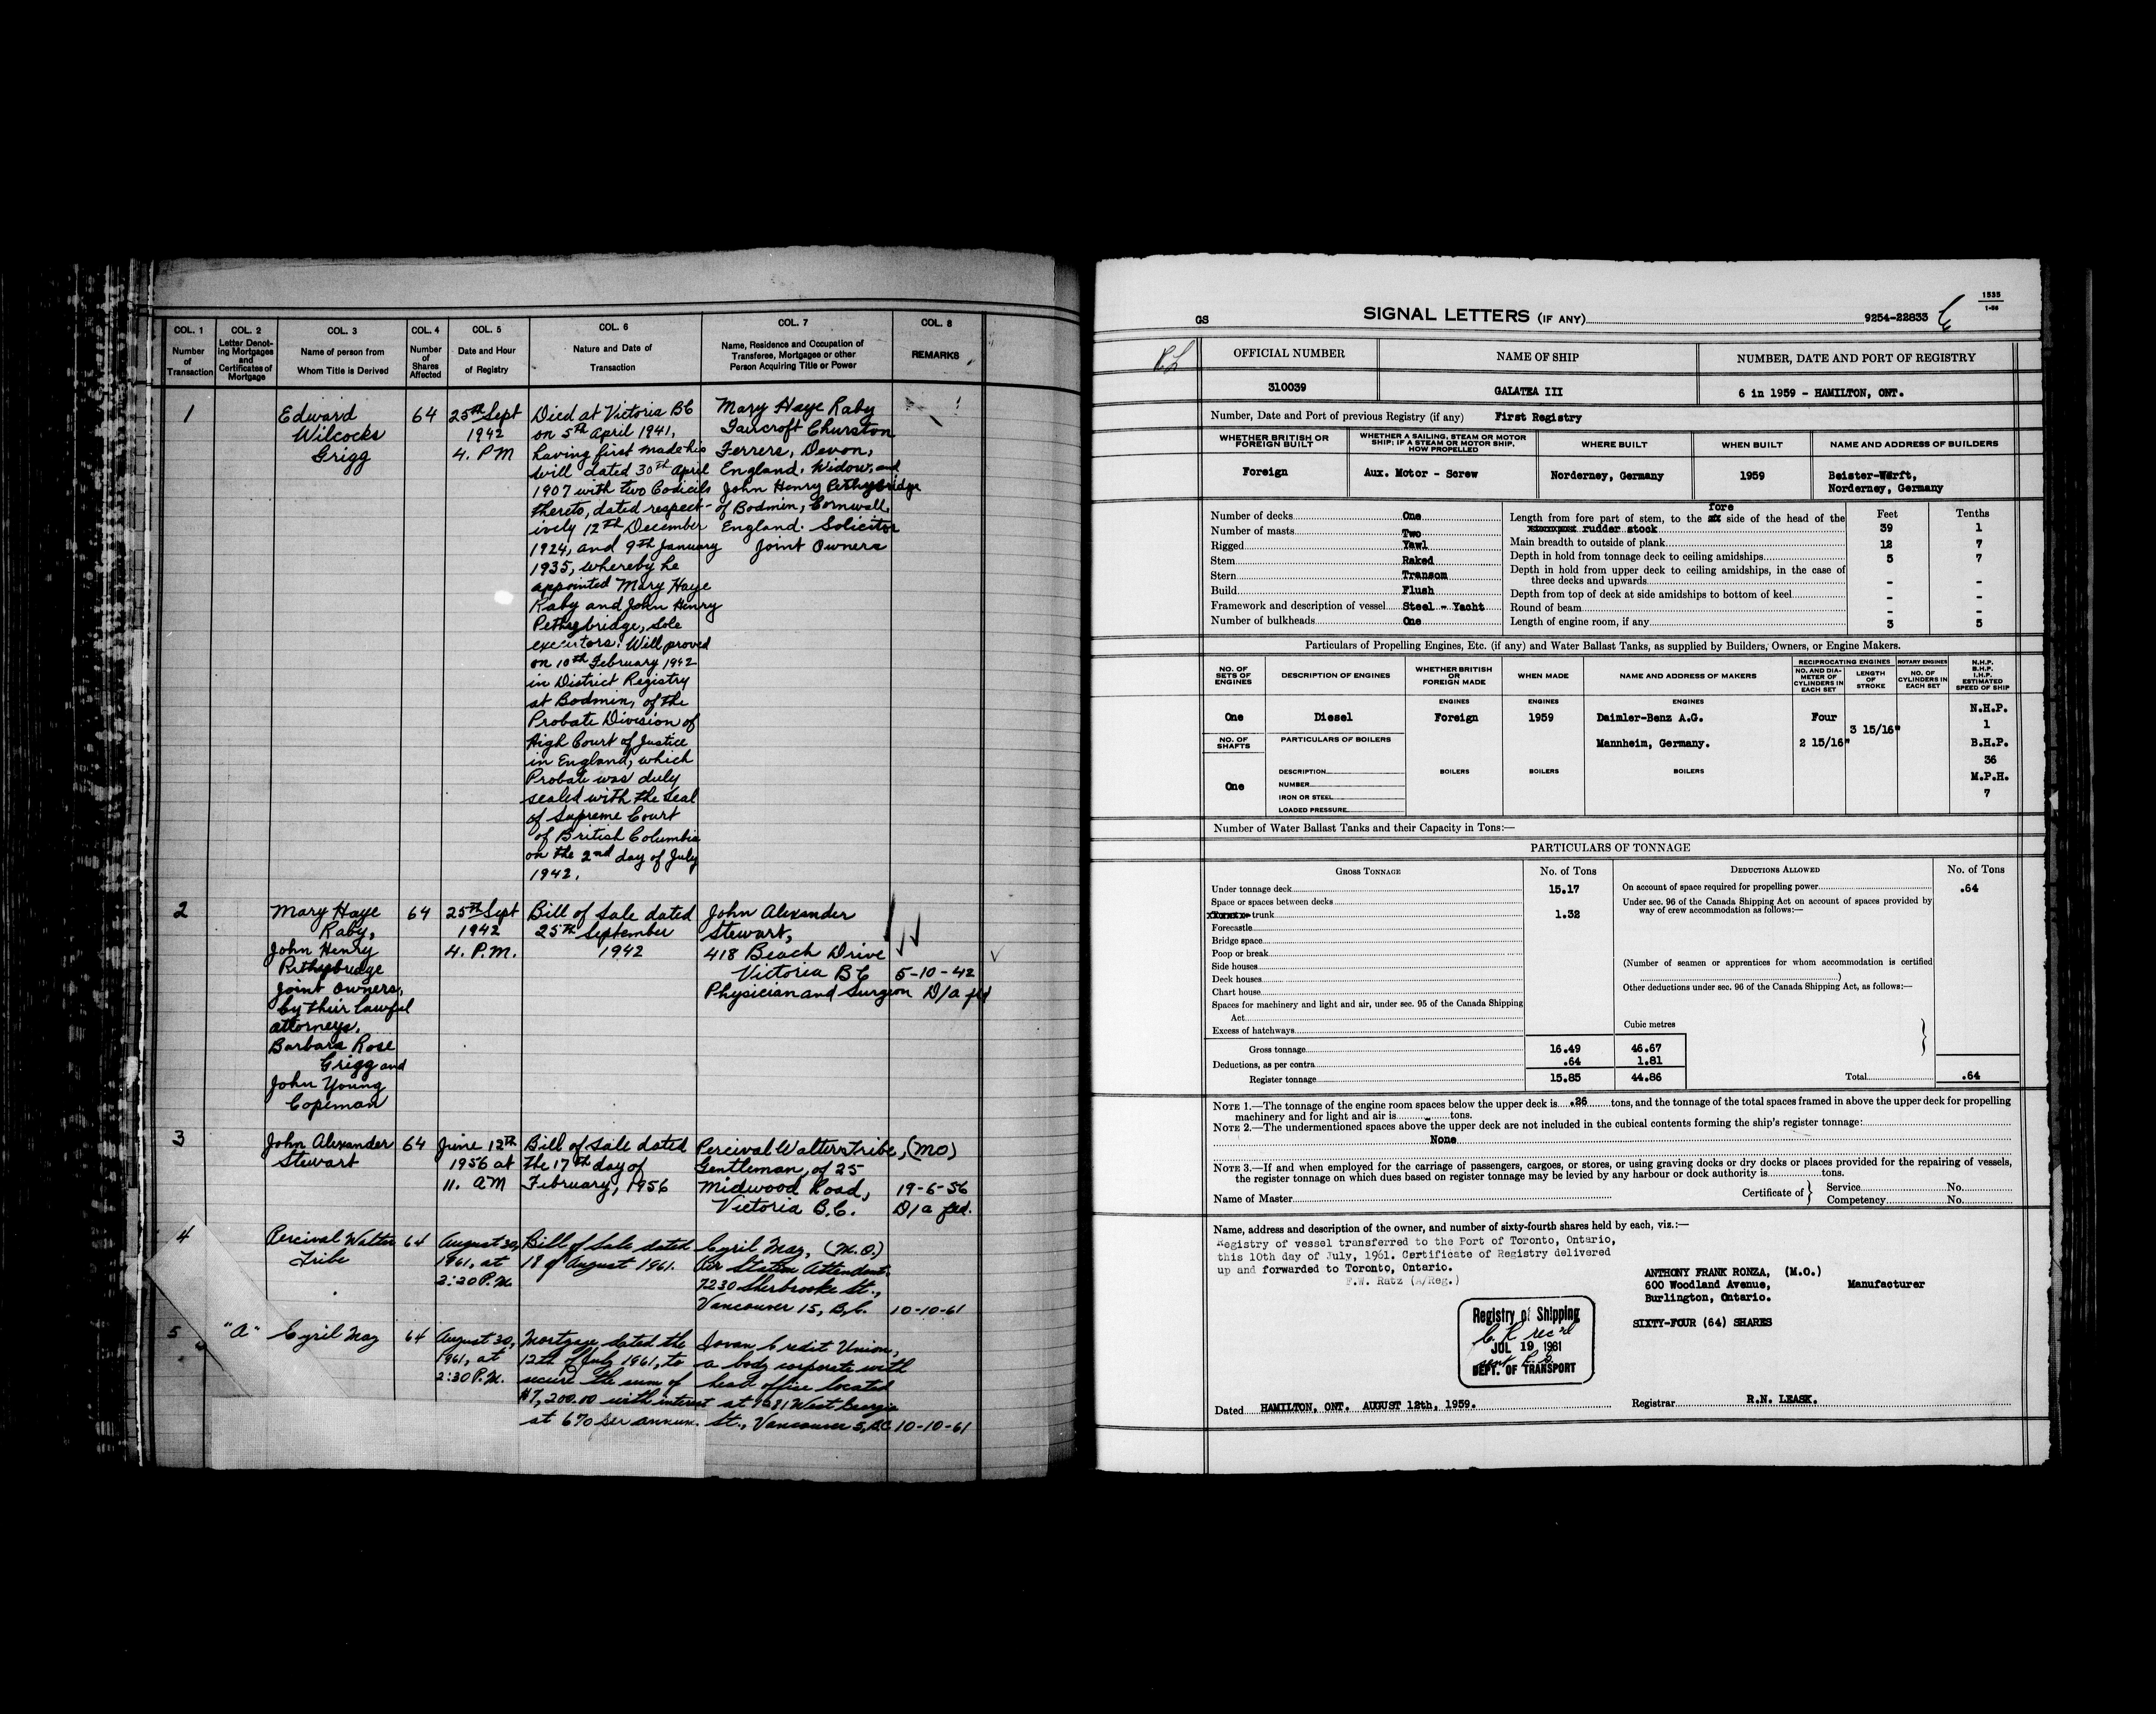 COL. 1
Number
of
Transaction
COL. 2
Letter Denot-
ing Mortgages
and
Certificates of
Mortgage
COL. 3
Name of person from
Whom Title is Derived
COL. 4
Number
of
Shares
Affected
COL. 5
Date and Hour
of Registry
COL. 6
Nature and Date of
Transaction
COL. 7
Name, Residence and Occupation of
Transferee, Mortgagee or other
Person Acquiring Title or Power
COL. 8
REMARKS
1
Edward
Wilcocks
Grigg
64
25th Sept
1942
4. PM
Died at Victoria BC
on 5th April 1941,
having first made his
will dated 30th April
1907 with two Codicils
thereto, dated respect-
ively 12th December
1924, and 9th January
1935, whereby he
appointed Mary Haye
Raby and John Henry
Pethybridge, sole
executors. Will proved
on 10th February 1942
in District Registry
at Bodmin, of the
Probate Division of
High Court of Justice
in England, which
Probate was duly
sealed with the seal
of Supreme Court
of British Columbia
on the 2nd day of July
1942.
Mary Haye Raby
Faircroft Churston
Ferrers, Devon,
England. Widow, and
John Henry Pethybridge
of Bodmin, Cornwall,
England. Solicitor
Joint Owners
2
Mary Haye
Raby,
John Henry
Pethybridge
Joint Owners,
by their lawful
attorneys.
Barbara Rose
Grigg and
John Young
Copeman
64
25th Sept
1942
4. P.M.
Bill of Sale dated
25th September
1942
John Alexander
Stewart,
418 Beach Drive
Victoria BC
Physician and Surgeon
5-10-42
D/a fld
3
John Alexander
Stewart
64
June 12th
1956 at
11. AM
Bill of Sale dated
the 17th day of
February, 1956
Percival Walter Tribe, (MO)
Gentleman, of 25
Midwood Road,
Victoria B.C.
19-6-56
D/a fld.
4
Percival Walter
Tribe
64
August 30,
1961, at
2:20 P.M.
Bill of Sale dated
18 of August 1961.
Cyril May, (M.O.)
Air Station Attendant,
7230 Sherbrooke St.,
Vancouver 15, B.C.
10-10-61
5
"A"
Cyril May
64
August 30,
1961, at
2:30 P.M.
Mortgage dated the
12th of July 1961, to
secure the sum of
$7,200.00 with interest
at 6% per annum.
Credit Union,
a body corporate with
head office located
at West Georgia
St., Vancouver 5, B.C.
10-10-61
1535
1-56
GS
SIGNAL LETTERS (IF ANY)
9254-22833
OFFICIAL NUMBER
NAME OF SHIP
NUMBER, DATE AND PORT OF REGISTRY
310039
GALATEA III
6 in 1959 - HAMILTON, ONT.
Number, Date and Port of previous Registry (if any) First Registry
WHETHER BRITISH OR
FOREIGN BUILT
WHETHER A SAILING, STEAM OR MOTOR
SHIP; IF A STEAM OR MOTOR SHIP,
HOW PROPELLED
WHERE BUILT
WHEN BUILT
NAME AND ADDRESS OF BUILDERS
Foreign
Aux. Motor - Screw
Norderney, Germany
1959
Beister-Werft,
Norderney, Germany
Number of decks One
Number of masts Two
Rigged Yawl
Stem Raked
Stern Transom
Build Flush
Framework and description of vessel Steel - Yacht
Number of bulkheads One
Feet
Tenths
fore
Length from fore part of stem, to the side of the head of the
rudder stock 39 1
Main breadth to outside of plank 12 7
Depth in hold from tonnage deck to ceiling amidships 5 7
Depth in hold from upper deck to ceiling amidships, in the case of
three decks and upwards - -
Depth from top of deck at side amidships to bottom of keel - -
Round of beam - -
Length of engine room, if any 3 5
Particulars of Propelling Engines, Etc. (if any) and Water Ballast Tanks, as supplied by Builders, Owners, or Engine Makers.
NO. OF
SETS OF
ENGINES
DESCRIPTION OF ENGINES
WHETHER BRITISH
OR
FOREIGN MADE
WHEN MADE
NAME AND ADDRESS OF MAKERS
RECIPROCATING ENGINES
NO. AND DIA-
METER OF
CYLINDERS IN
EACH SET
LENGTH
OF
STROKE
ROTARY ENGINES
NO. OF
CYLINDERS IN
EACH SET
N.H.P.
B.H.P.
I.H.P.
ESTIMATED
SPEED OF SHIP
ENGINES
ENGINES
ENGINES
One
Diesel
Foreign
1959
Daimler-Benz A.G.
Mannheim, Germany.
Four
2 15/16"
3 15/16"
N.H.P.
1
B.H.P.
36
M.P.H.
7
NO. OF
SHAFTS
One
PARTICULARS OF BOILERS
DESCRIPTION
NUMBER
IRON OR STEEL
LOADED PRESSURE
BOILERS
BOILERS
BOILERS
Number of Water Ballast Tanks and their Capacity in Tons:—
PARTICULARS OF TONNAGE
GROSS TONNAGE
No. of Tons
Under tonnage deck 15.17
Space or spaces between decks
trunk 1.32
Forecastle
Bridge space
Poop or break
Side houses
Deck houses
Chart house
Spaces for machinery and light and air, under sec. 95 of the Canada Shipping
Act
Excess of hatchways
Cubic metres
Gross tonnage 16.49 46.67
Deductions, as per contra .64 1.81
Register tonnage 15.85 44.86
DEDUCTIONS ALLOWED
No. of Tons
On account of space required for propelling power .64
Under sec. 96 of the Canada Shipping Act on account of spaces provided by
way of crew accommodation as follows:—
(Number of seamen or apprentices for whom accommodation is certified
)
Other deductions under sec. 96 of the Canada Shipping Act, as follows:—
Total .64
NOTE 1.—The tonnage of the engine room spaces below the upper deck is .26 tons, and the tonnage of the total spaces framed in above the upper deck for propelling
machinery and for light and air is - tons.
NOTE 2.—The undermentioned spaces above the upper deck are not included in the cubical contents forming the ship's register tonnage:
None
NOTE 3.—If and when employed for the carriage of passengers, cargoes, or stores, or using graving docks or dry docks or places provided for the repairing of vessels,
the register tonnage on which dues based on register tonnage may be levied by any harbour or dock authority is tons.
Name of Master
Certificate of
Service No.
Competency No.
Name, address and description of the owner, and number of sixty-fourth shares held by each, viz.:—
Registry of vessel transferred to the Port of Toronto, Ontario,
this 10th day of July, 1961. Certificate of Registry delivered
up and forwarded to Toronto, Ontario.
F.W. Ratz (A/Reg.)
ANTHONY FRANK RONZA, (M.O.)
600 Woodland Avenue, Manufacturer
Burlington, Ontario.
SIXTY-FOUR (64) SHARES
Registry of Shipping
C. R rec'd
JUL 19 1961
DEPT. OF TRANSPORT
Dated HAMILTON, ONT. AUGUST 12th, 1959.
Registrar R.N. LEASK.